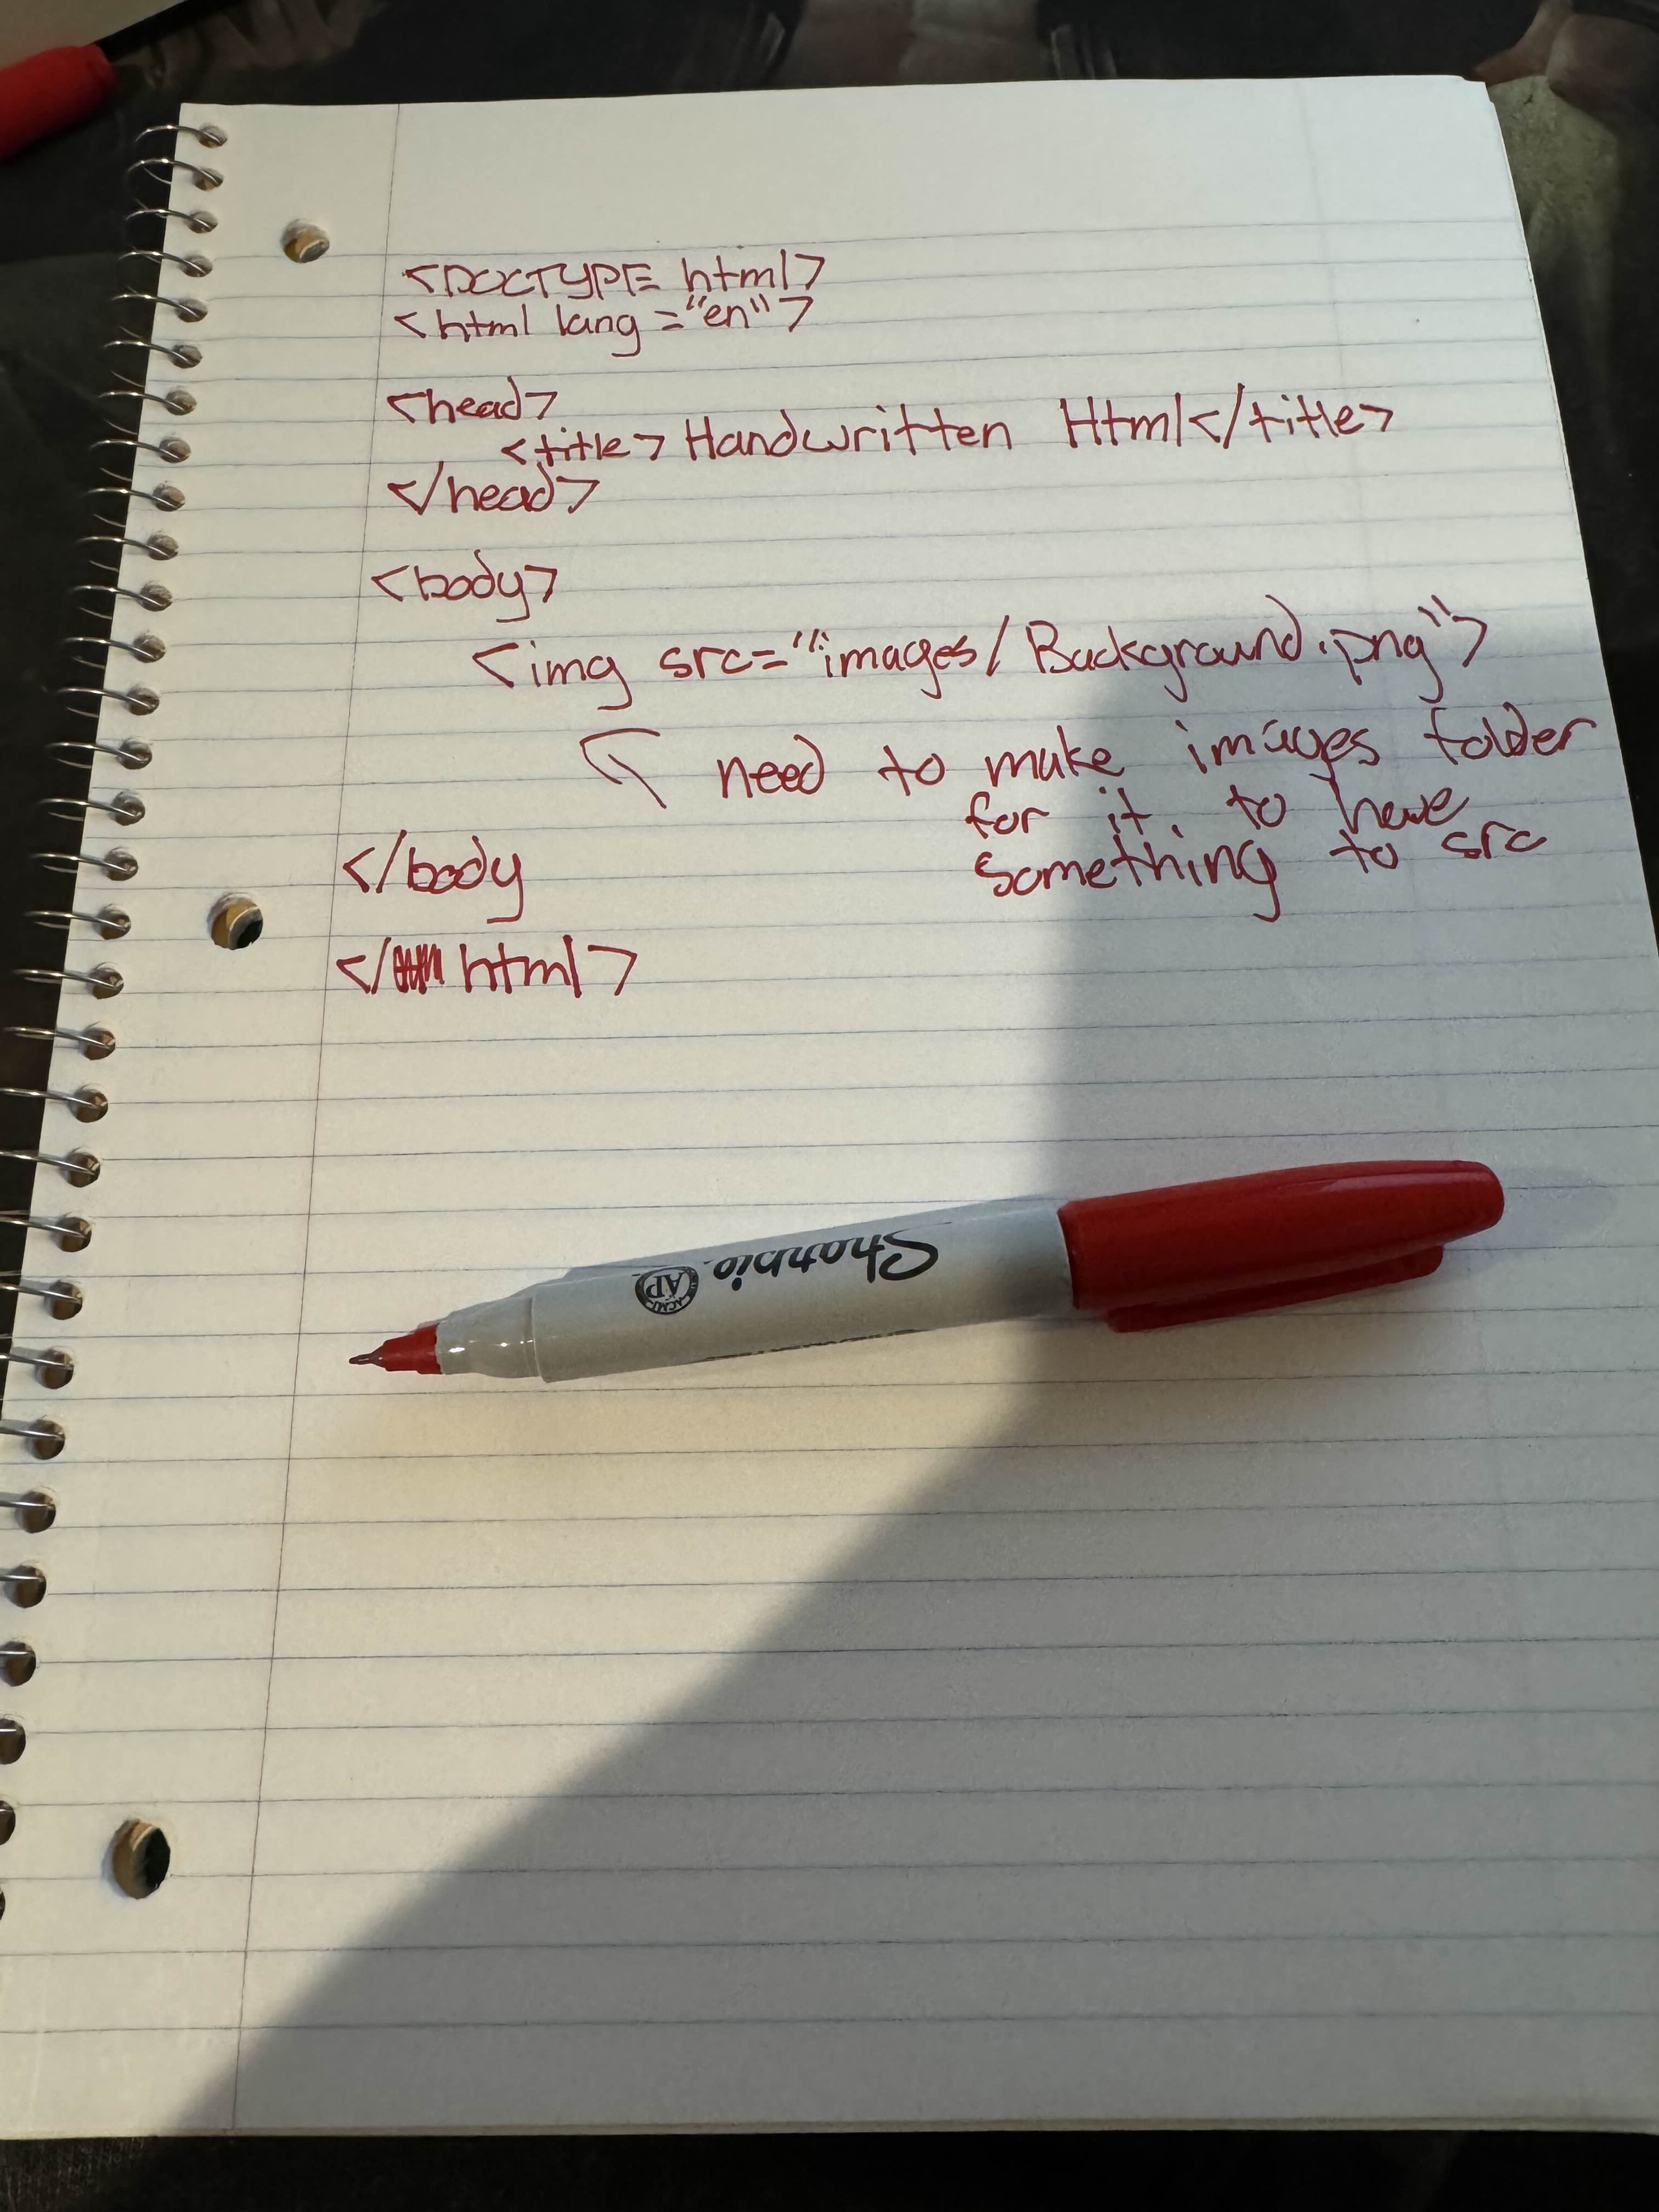 <DOCTYPE html>
<html lang="en">
<head>
<title>Handwritten Html</title>
</head>
<body>
<img src="images/Background.png">
need to make images folder
for it to have
something to src
</body
</html>
Sharpie.
ACMI
AP